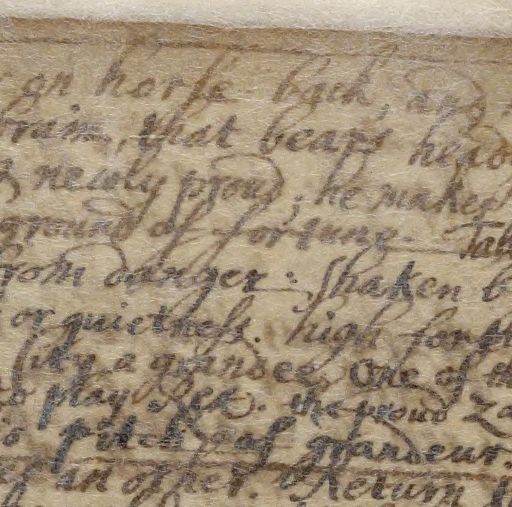 on horse back, and
brain, that bears head
newly proud; he makes
ground of fortune. Tall
from danger: shaken b
or quietness. high forth
a grandee. One of th
play . the proud
pitch of grandeur.
in other. Return